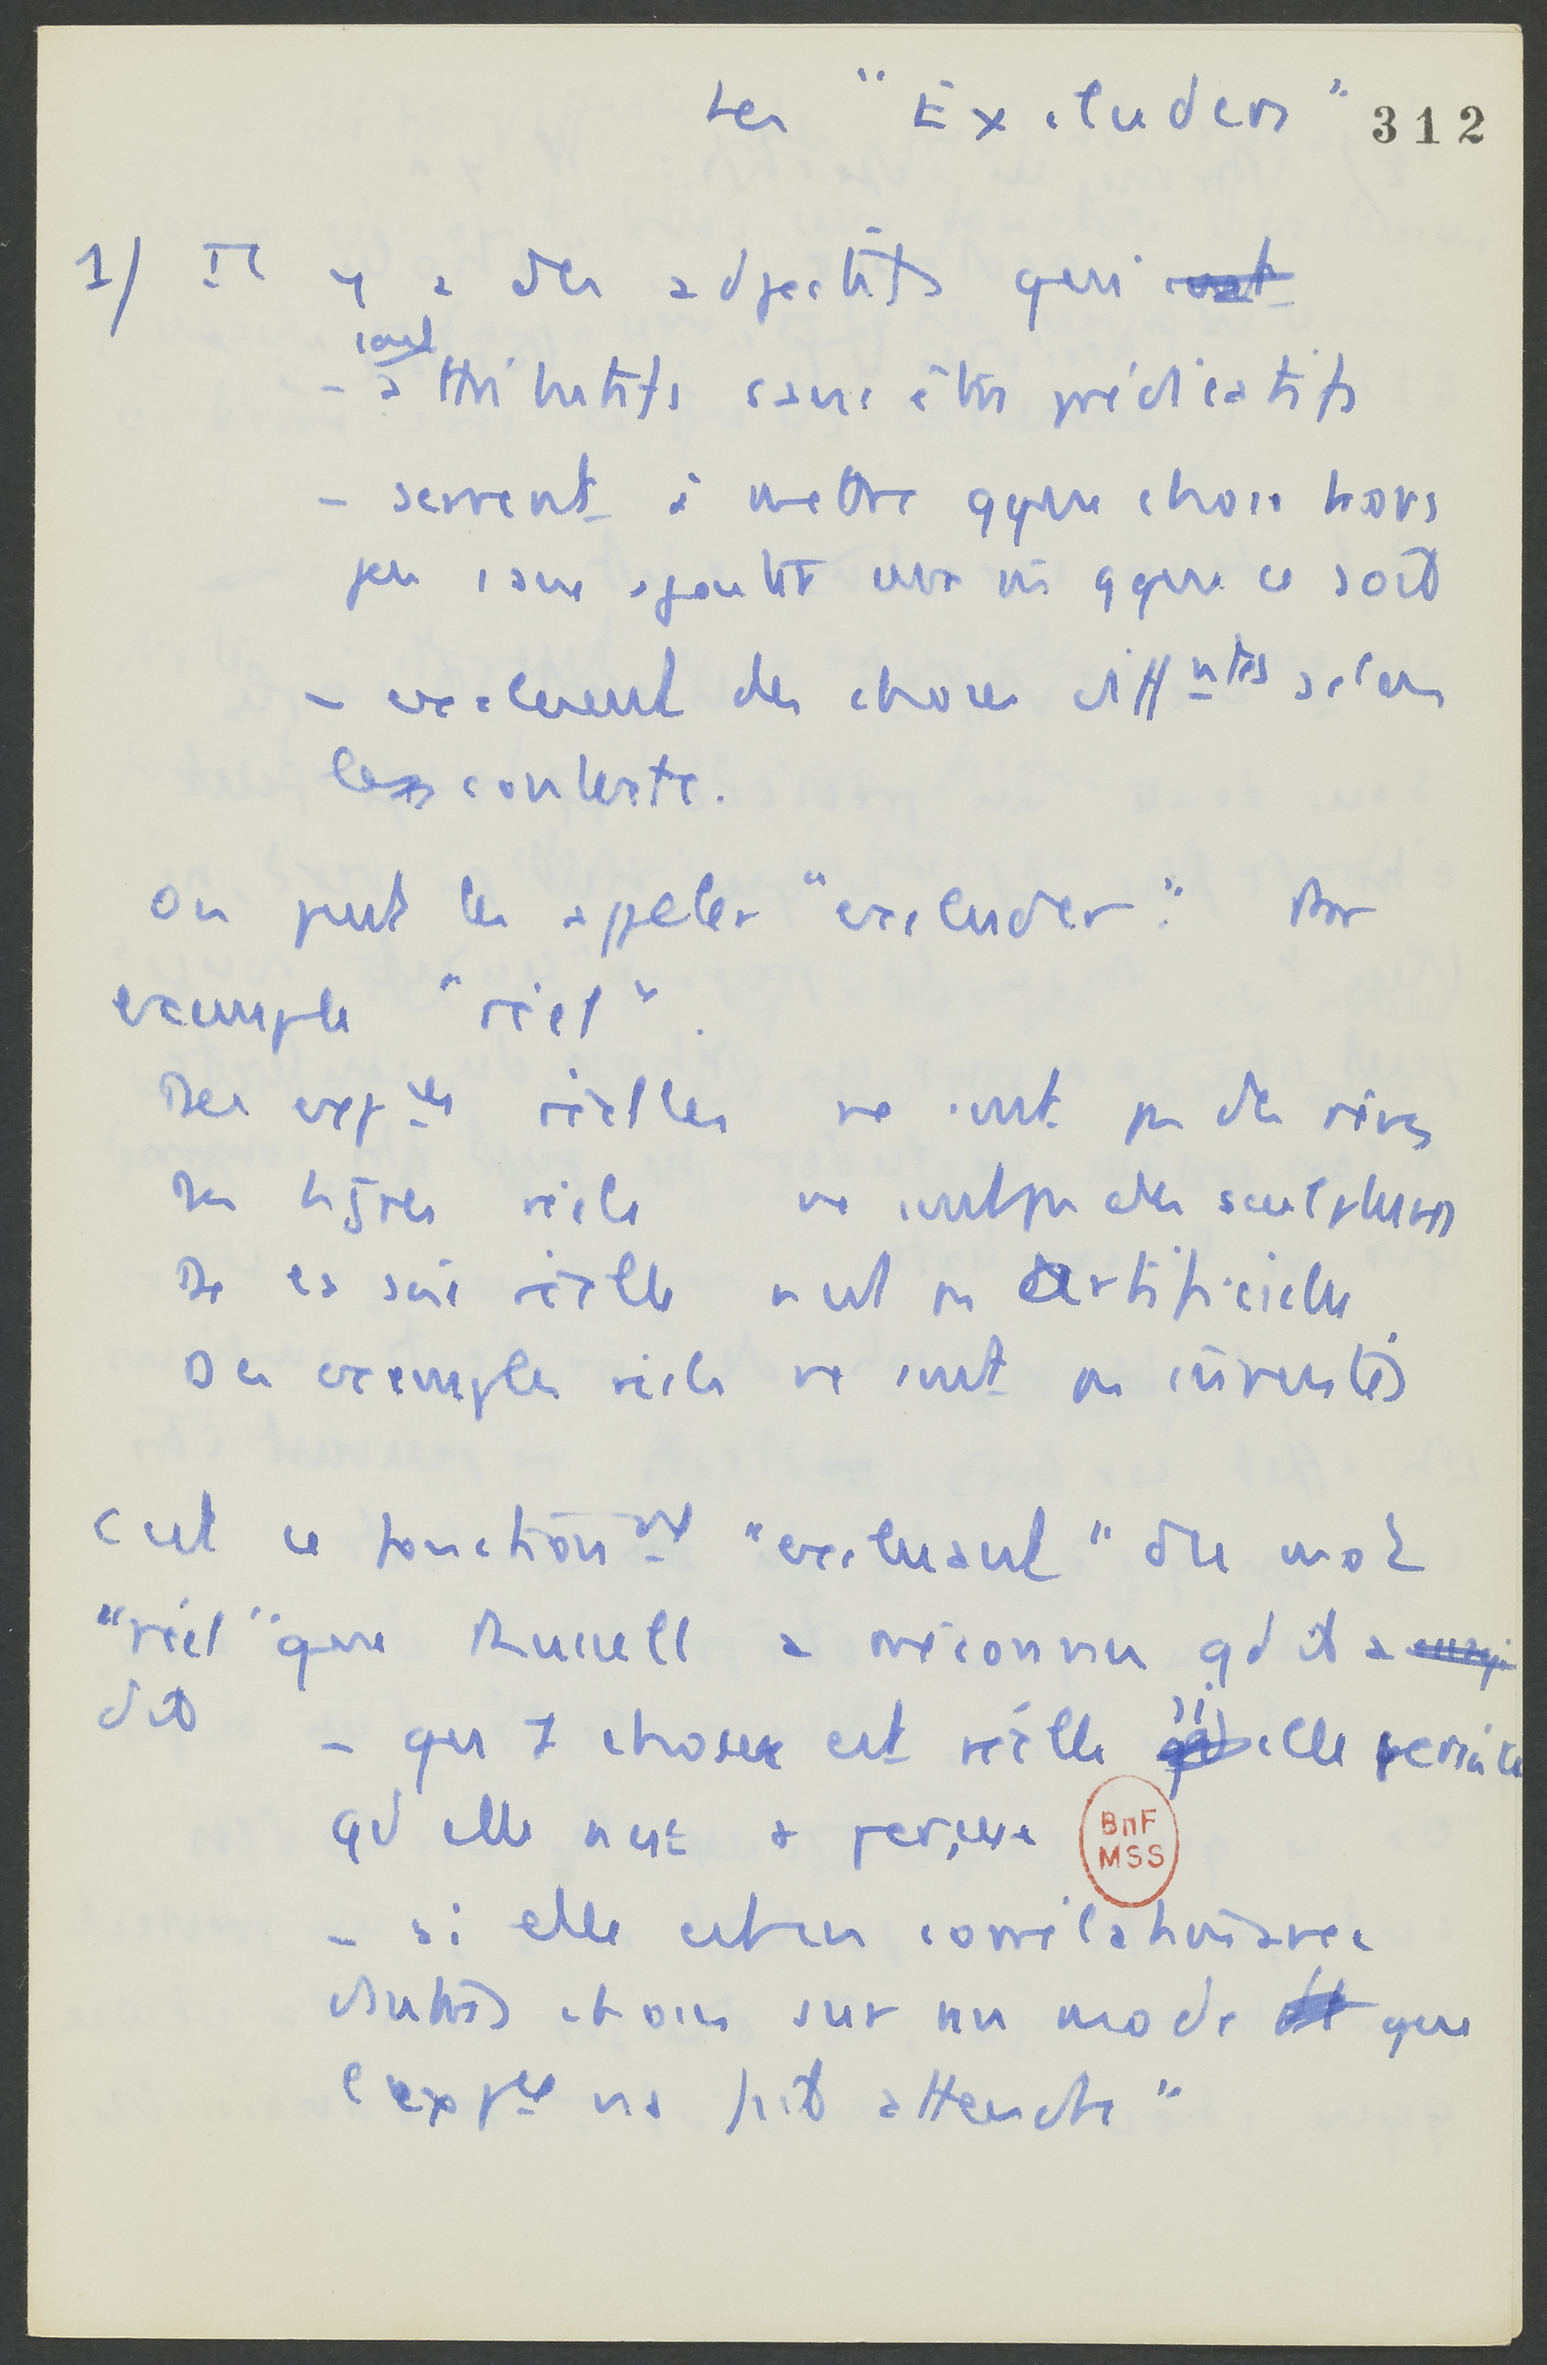 Les "Excluders" 312
1/ Il y a des adjectifs qui sont
sont
- attributifs sans être prédicatifs
- servent à mettre qque chose hors
jeu sans ajouter quoi que ce soit
- excluent des choses diffntes selon
les contexte.
On peut les appeler "excluder". Par
exemple "réel".
Des expces réelles ne sont pas des rêves
Des tigres réels ne sont pas des sculptures
De la soie réelle n'est pas artificielle
Des exemples réels ne sont pas inventés
C'est ce fonctionnt "excluant" du mot
"réel" que Russell a méconnu qd il a
dit - que 1 chose est réelle si elle persiste
qd elle n'est + perçue
BnF
MSS
- si elle est en corrélation avec
d'autres choses sur un mode que
l'expce ns fait attendre"